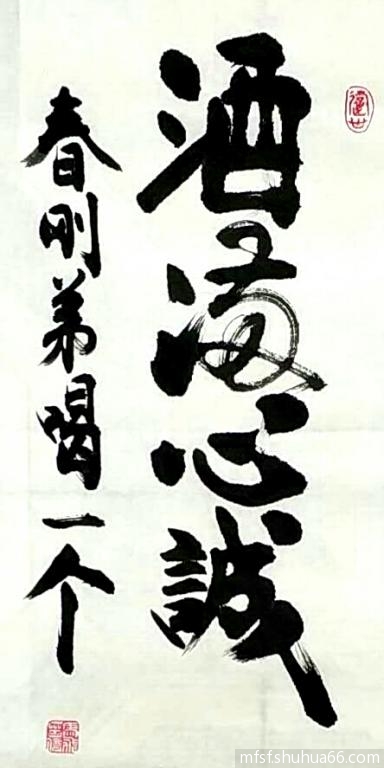 酒满心誠
春刚弟喝一个
mfsfshuhua66.com